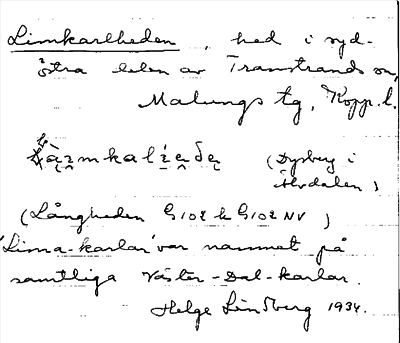 Limkarlheden, hed i syd-
östra delen av Transtrands sn,
Malungs tg, Kopp. l.
(Dysberg i
Älvdalen)
(Långheden G10Z k G10Z NV)
'Lima-karlar' var namnet på
samtliga Väster-Dal-karlar.
Helge Lindberg 1934.